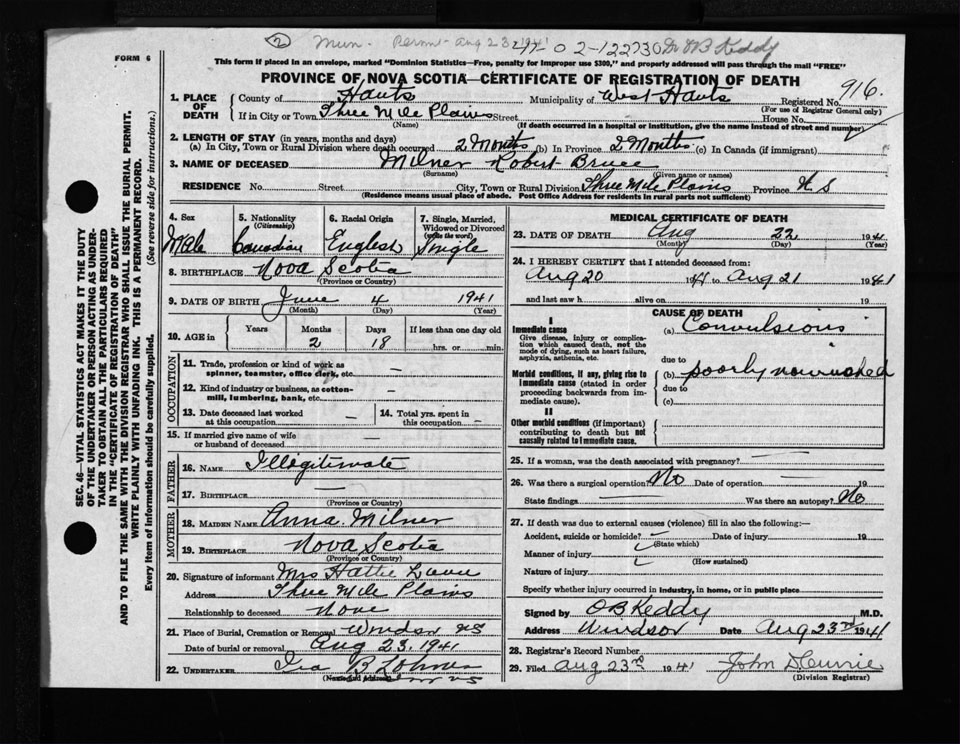 ② Mun. Permit - Aug 23 1941 41-02-122730 Dr OB Keddy
FORM 6
This form if placed in an envelope, marked "Dominion Statistics—Free, penalty for improper use $300," and properly addressed will pass through the mail "FREE"
PROVINCE OF NOVA SCOTIA—CERTIFICATE OF REGISTRATION OF DEATH
916.
1. PLACE OF DEATH County of Hants Municipality of West Hants Registered No.
(For use of Registrar General only)
If in City or Town Three Mile Plains Street House No.
(Name) (If death occurred in a hospital or institution, give the name instead of street and number)
2. LENGTH OF STAY (in years, months and days)
(a) In City, Town or Rural Division where death occurred 2 Months (b) In Province 2 Months (c) In Canada (if immigrant)
3. NAME OF DECEASED Milner Robert Bruce
(Surname) (Given name or names)
RESIDENCE No. Street City, Town or Rural Division Three Mile Plains Province N S
(Residence means usual place of abode. Post Office Address for residents in rural parts not sufficient)
4. Sex Male
5. Nationality (Citizenship) Canadian
6. Racial Origin English
7. Single, Married, Widowed or Divorced (write the word) Single
8. BIRTHPLACE Nova Scotia
(Province or Country)
9. DATE OF BIRTH June 4 1941
(Month) (Day) (Year)
10. AGE in Years Months Days If less than one day old
2 18 hrs. or min.
OCCUPATION
11. Trade, profession or kind of work as spinner, teamster, office clerk, etc. —
12. Kind of industry or business, as cotton-mill, lumbering, bank, etc. —
13. Date deceased last worked at this occupation —
14. Total yrs. spent in this occupation —
15. If married give name of wife or husband of deceased —
FATHER
16. NAME Illegitimate
17. BIRTHPLACE —
(Province or Country)
MOTHER
18. MAIDEN NAME Anna Milner
19. BIRTHPLACE Nova Scotia
(Province or Country)
20. Signature of informant Mrs Hattie
Address Three Mile Plains
Relationship to deceased None
21. Place of Burial, Cremation or Removal Windsor NS
Date of burial or removal Aug 23, 1941
22. UNDERTAKER Ira B
(Name and Address) NS
MEDICAL CERTIFICATE OF DEATH
23. DATE OF DEATH Aug 22 1941
(Month) (Day) (Year)
24. I HEREBY CERTIFY that I attended deceased from:
Aug 20 1941 to Aug 21 1941
and last saw h alive on 19
CAUSE OF DEATH
I
Immediate cause
Give disease, injury or complication which caused death, not the mode of dying, such as heart failure, asphyxia, asthenia, etc.
(a) Convulsions
due to
Morbid conditions, if any, giving rise to immediate cause (stated in order proceeding backwards from immediate cause).
(b) poorly nourished
due to
(c)
II
Other morbid conditions (if important) contributing to death but not causally related to immediate cause.
25. If a woman, was the death associated with pregnancy? —
26. Was there a surgical operation? No Date of operation — 19
State findings — Was there an autopsy? No
27. If death was due to external causes (violence) fill in also the following:—
Accident, suicide or homicide? Date of injury 19
(State which)
Manner of injury
(How sustained)
Nature of injury
Specify whether injury occurred in industry, in home, or in public place
Signed by OB Keddy M.D.
Address Windsor Date Aug 23rd 1941
28. Registrar's Record Number
29. Filed Aug 23rd 1941 John D Currie
(Division Registrar)
SEC. 46—VITAL STATISTICS ACT MAKES IT THE DUTY
OF THE UNDERTAKER OR PERSON ACTING AS UNDER-
TAKER TO OBTAIN ALL THE PARTICULARS REQUIRED
IN THE "CERTIFICATE OF REGISTRATION OF DEATH"
AND TO FILE THE SAME WITH THE DIVISION REGISTRAR WHO SHALL ISSUE THE BURIAL PERMIT.
WRITE PLAINLY WITH UNFADING INK. THIS IS A PERMANENT RECORD.
Every item of information should be carefully supplied. (See reverse side for instructions.)